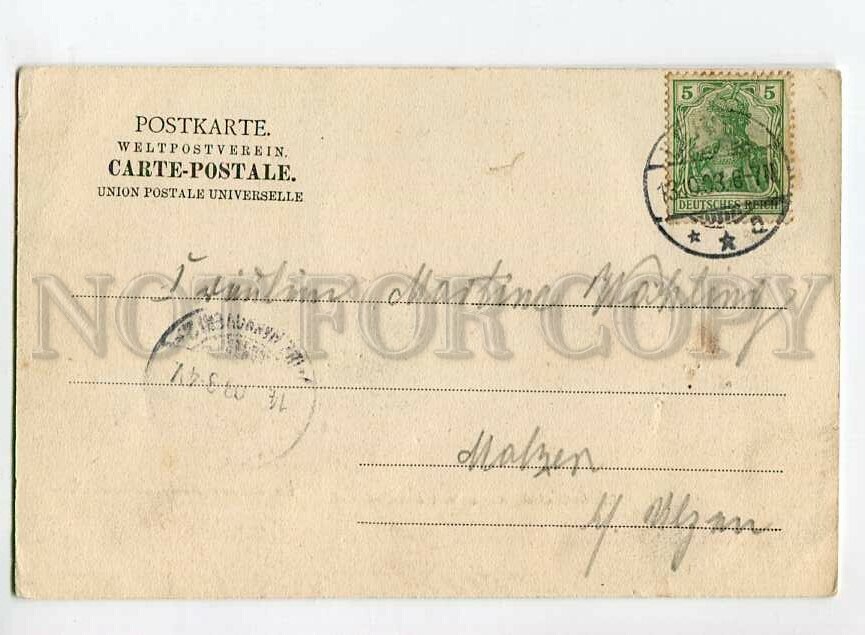 POSTKARTE.
WELTPOSTVEREIN.
CARTE-POSTALE.
UNION POSTALE UNIVERSELLE
5 5
DEUTSCHES REICH
13.10.03.6-7N
a
NOT FOR COPY
Fräulein Martine
3-4V
Molzen
b/ Ülzen